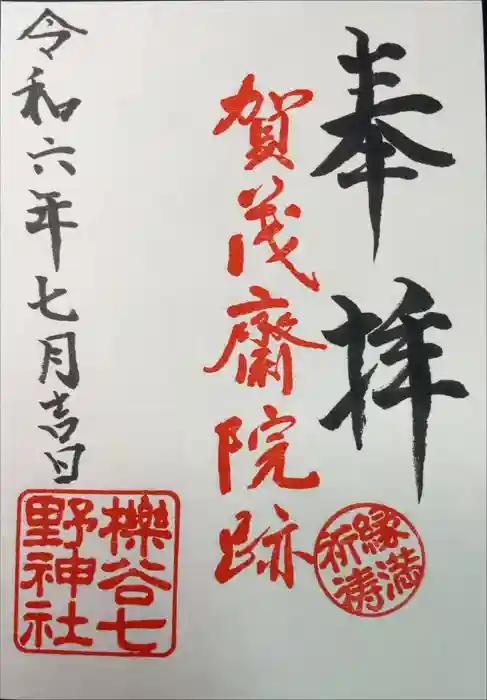 奉拝
賀茂斎院跡
令和六年七月吉日
縁満祈祷
櫟谷七野神社